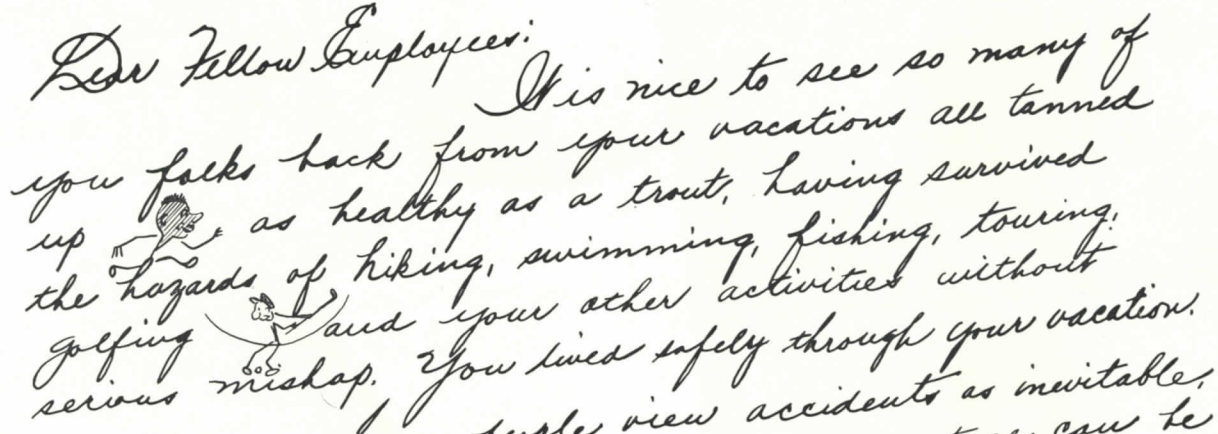 Dear Fellow Employees:
It is nice to see so many of
you folks back from your vacations all tanned
up as healthy as a trout, having survived
the hazards of hiking, swimming, fishing, touring,
golfing and your other activities without
serious mishap. You lived safely through your vacation.
view accidents as inevitable,
can be